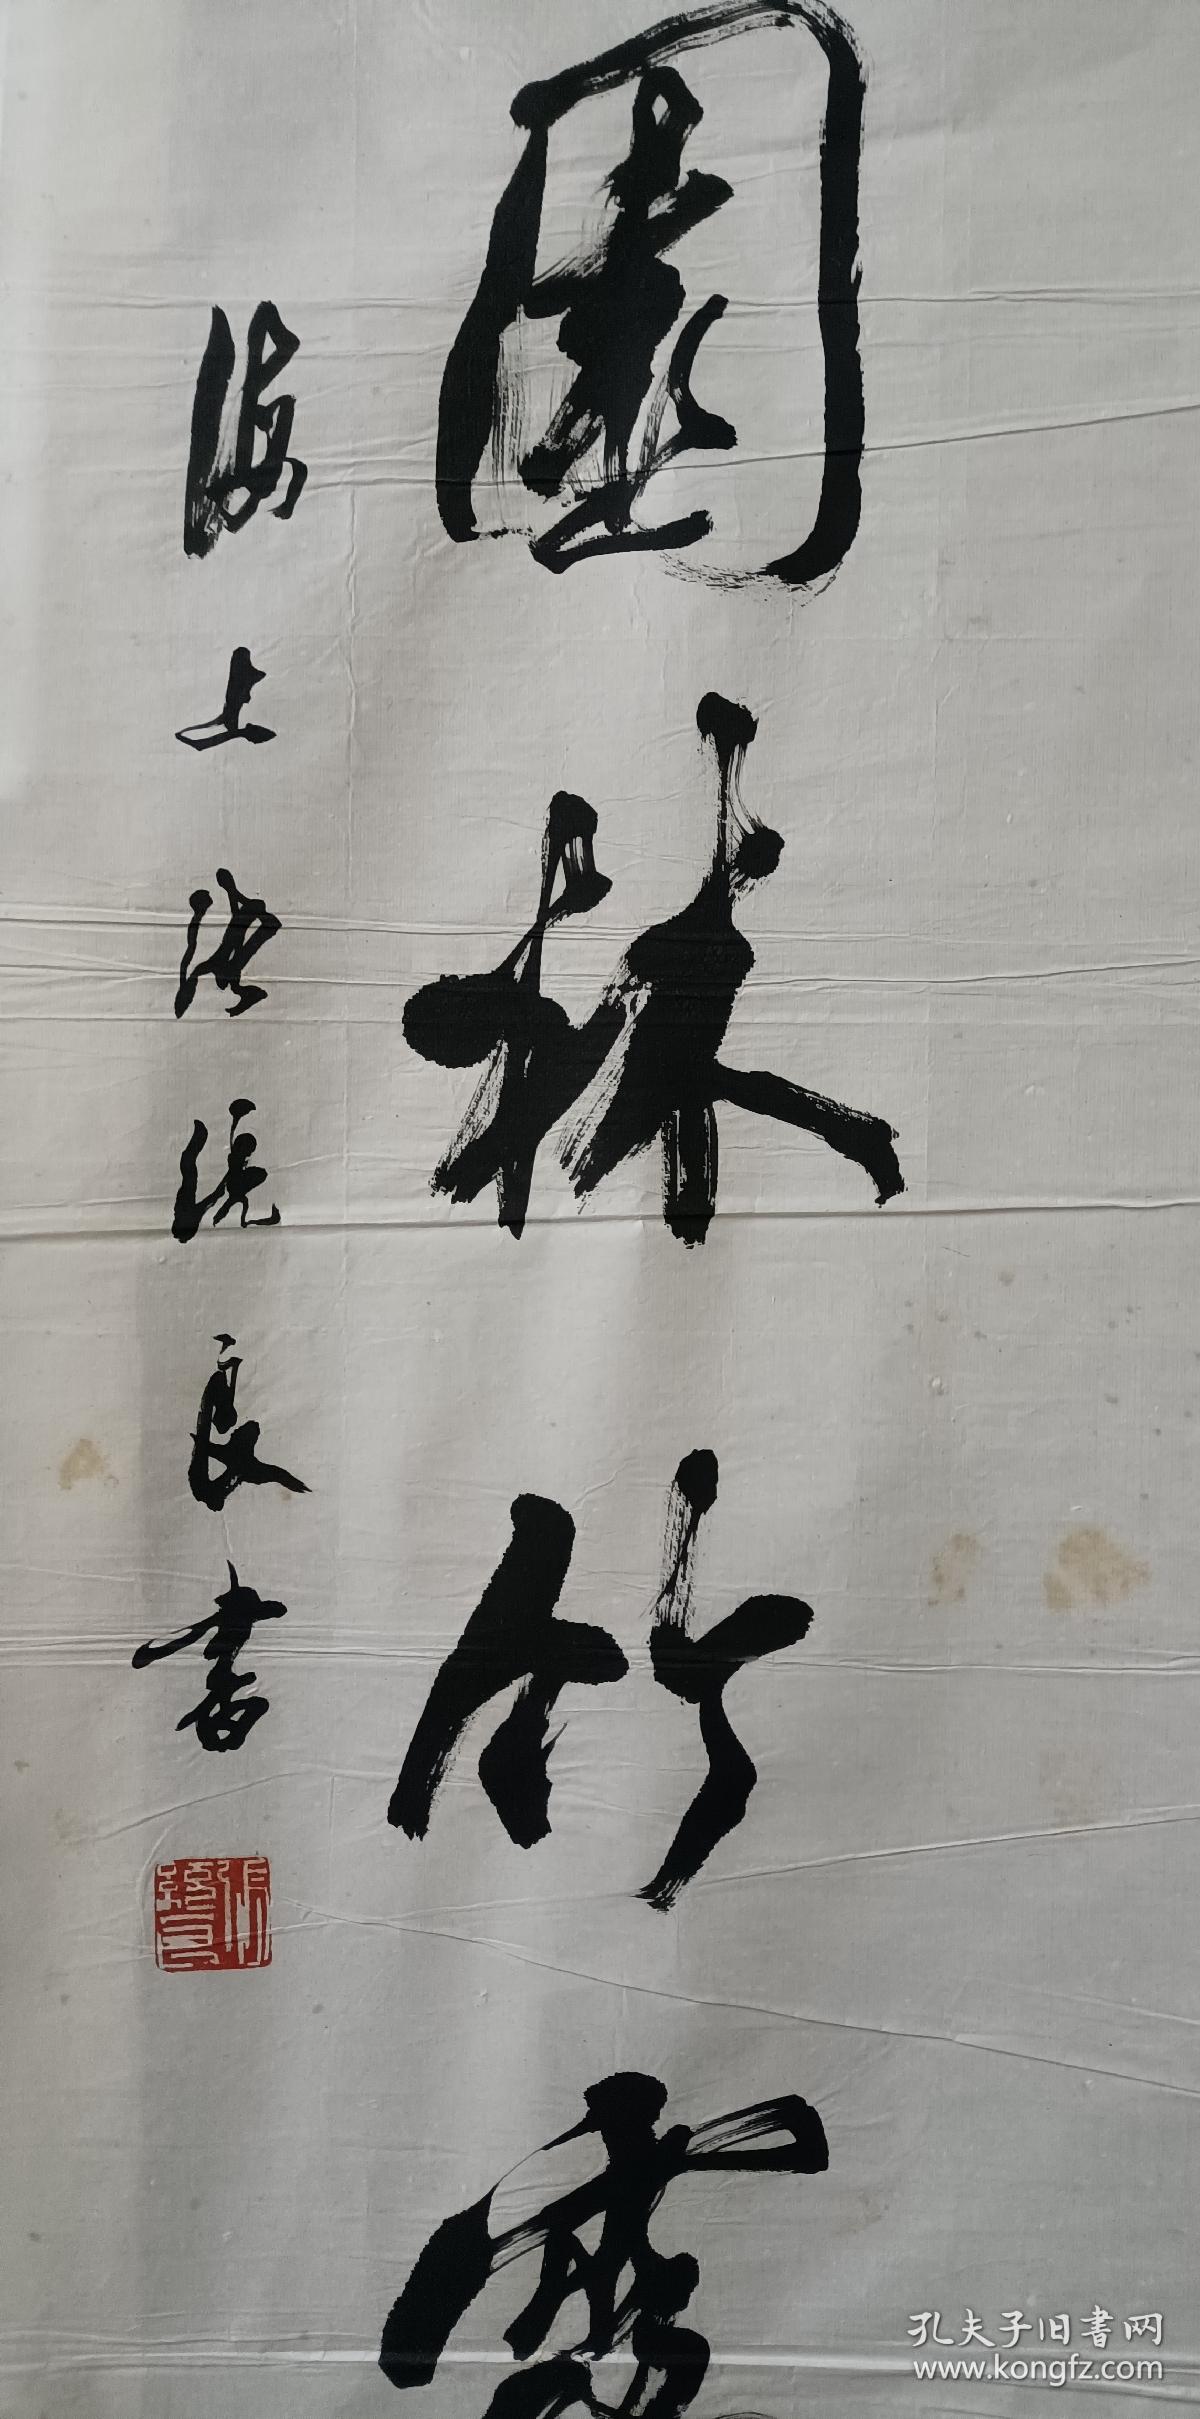 園林竹露
海上張統良書
孔夫子旧書网
www.kongfz.com